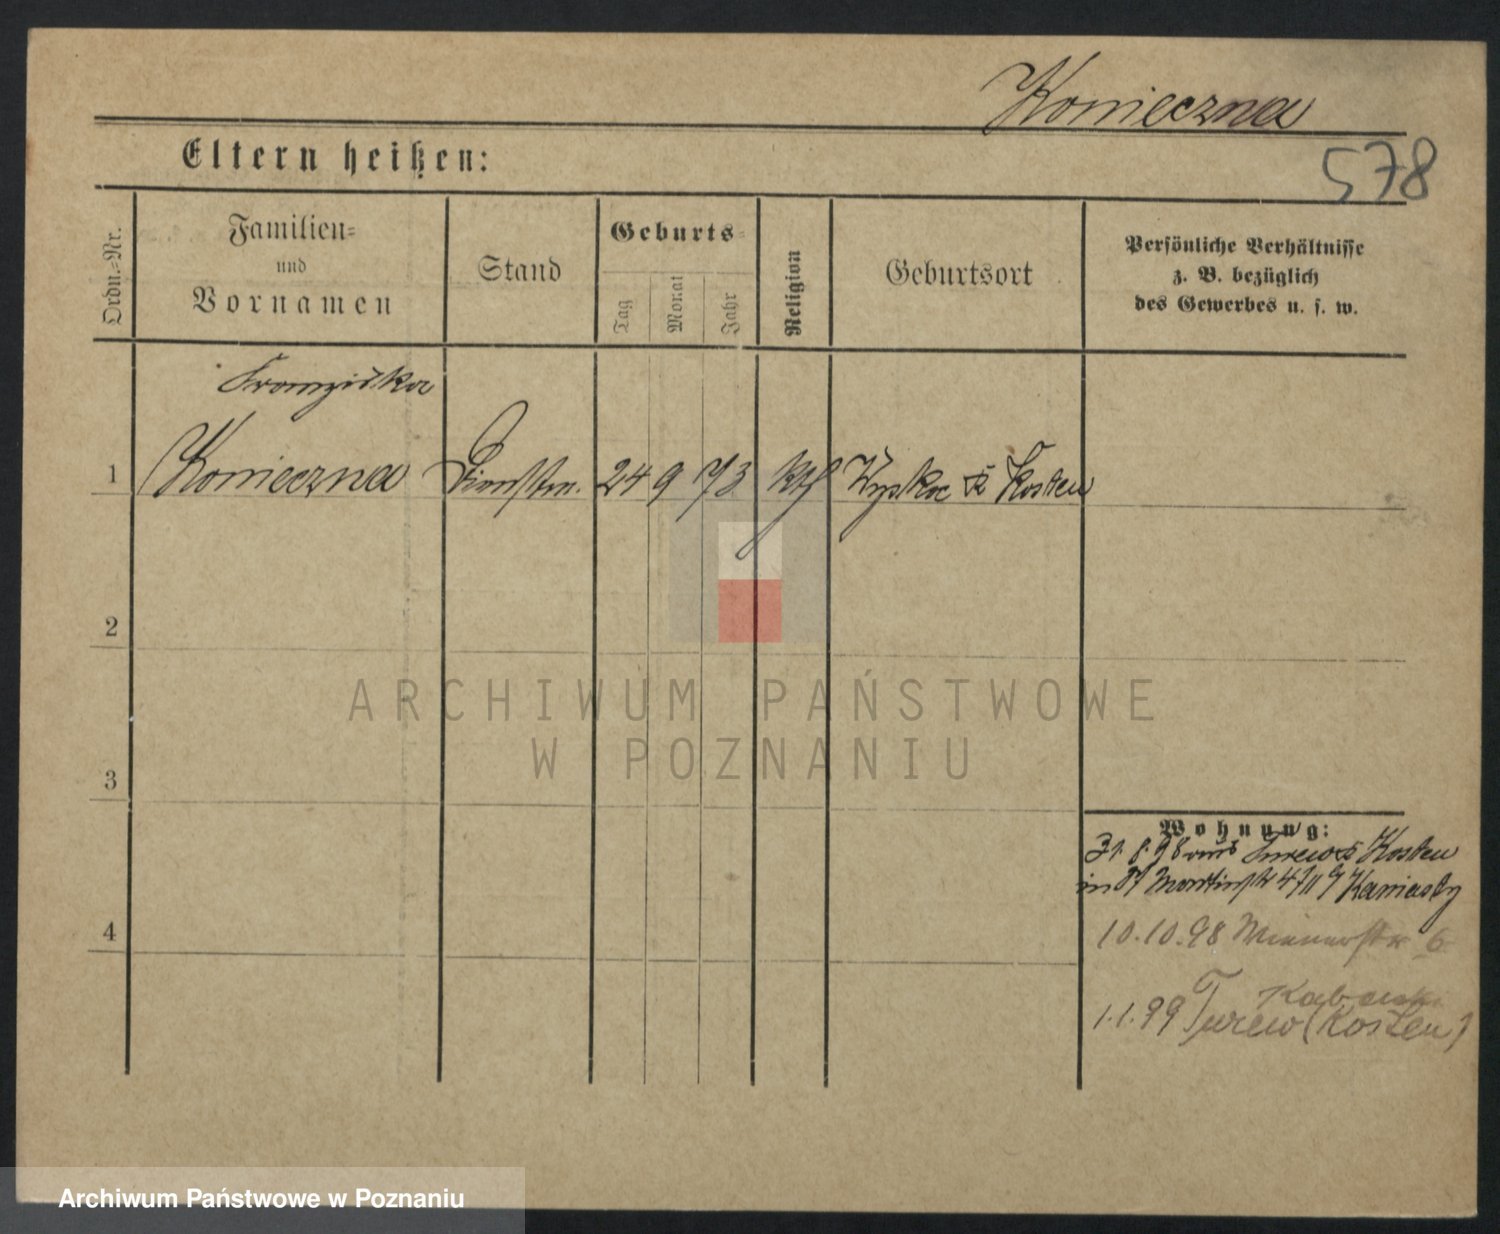 Konieczna
578
Eltern heißen:
Ordn.-Nr.
Familien-
und
Vornamen
Stand
Geburts-
Tag
Monat
Jahr
Religion
Geburtsort
Persönliche Verhältnisse
z. B. bezüglich
des Gewerbes u. s. w.
Franziska
1 Konieczna Dienstm. 24 9 73 kth Wyskoc Kr Kosten
2
3
4
ARCHIWUM PAŃSTWOWE
W POZNANIU
Wohnung:
31. 8. 98 aus Turew Kr Kosten
in St Martinstr 47 II Kaniasty
10.10.98 Wienerstr 6
1.1.99 Turew (Kosten)
Archiwum Państwowe w Poznaniu